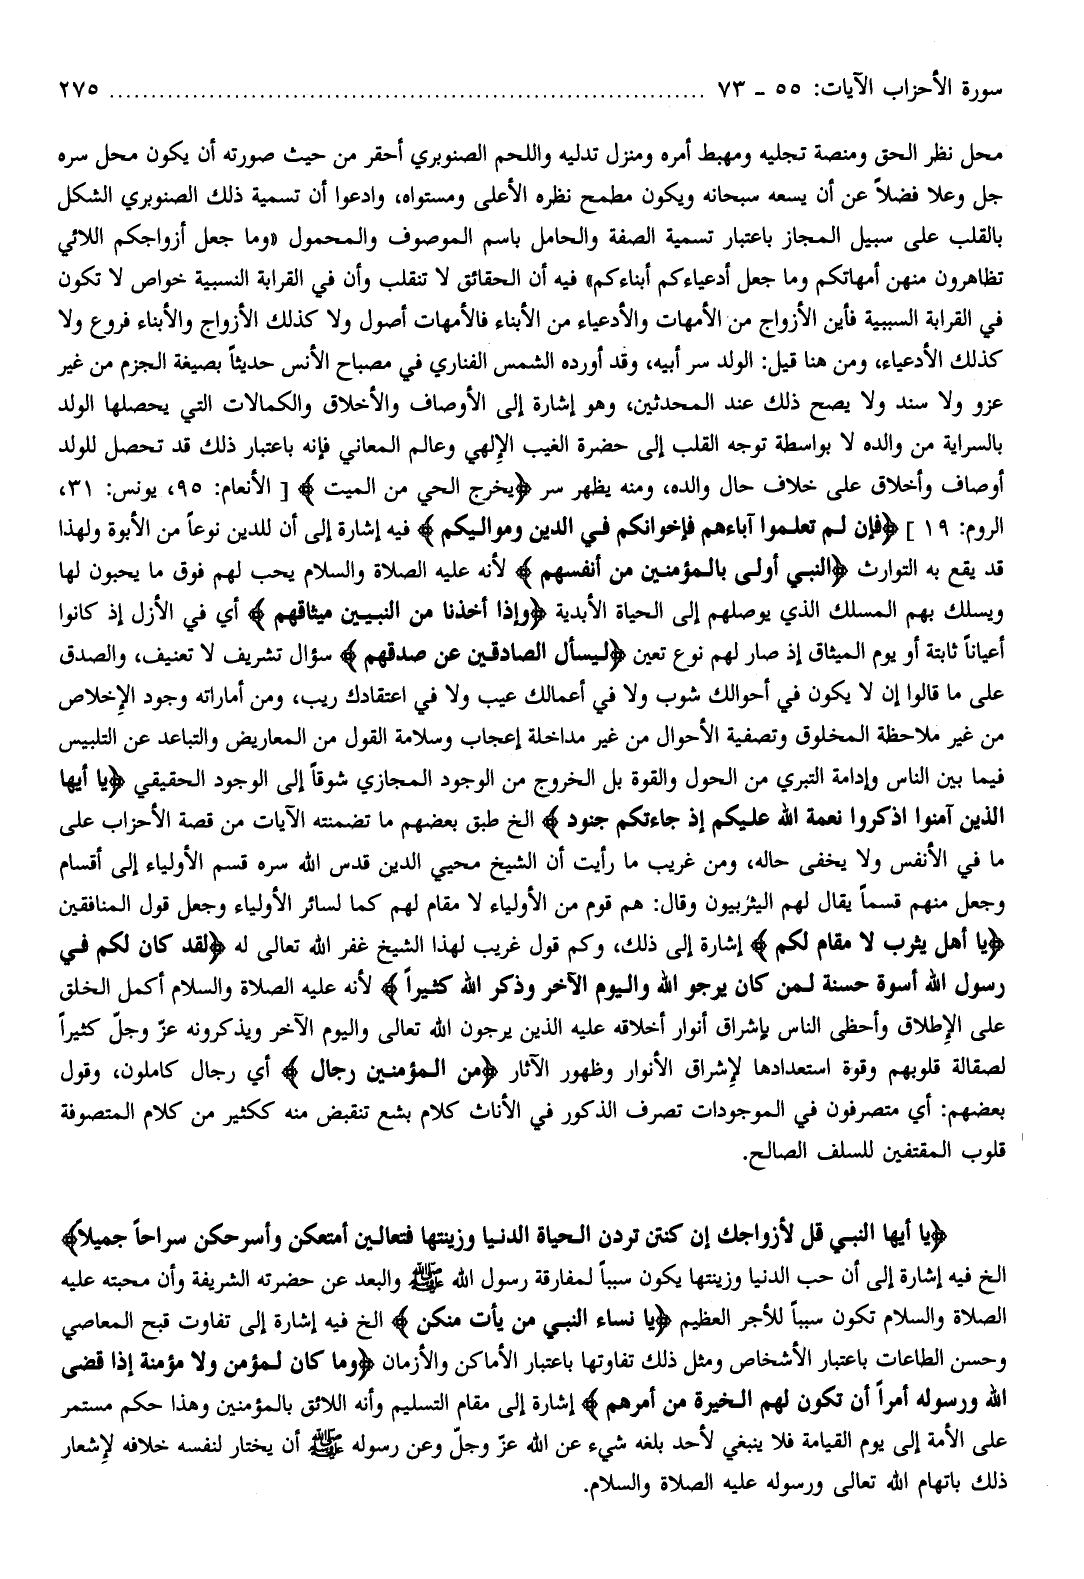 سورة الأحزاب الآيات: ٥٥ ـ ٧٣ ........................................................................ ٢٧٥
محل نظر الحق ومنصة تجليه ومهبط أمره ومنزل تدليه واللحم الصنوبري أحقر من حيث صورته أن يكون محل سره
جل وعلا فضلاً عن أن يسعه سبحانه ويكون مطمح نظره الأعلى ومستواه، وادعوا أن تسمية ذلك الصنوبري الشكل
بالقلب على سبيل المجاز باعتبار تسمية الصفة والحامل باسم الموصوف والمحمول «وما جعل أزواجكم اللائي
تظاهرون منهن أمهاتكم وما جعل أدعياءكم أبناءكم» فيه أن الحقائق لا تنقلب وأن في القرابة النسبية خواص لا تكون
في القرابة السببية فأين الأزواج من الأمهات والأدعياء من الأبناء فالأمهات أصول ولا كذلك الأزواج والأبناء فروع ولا
كذلك الأدعياء، ومن هنا قيل: الولد سر أبيه، وقد أورده الشمس الفناري في مصباح الأنس حديثاً بصيغة الجزم من غير
عزو ولا سند ولا يصح ذلك عند المحدثين، وهو إشارة إلى الأوصاف والأخلاق والكمالات التي يحصلها الولد
بالسراية من والده لا بواسطة توجه القلب إلى حضرة الغيب الإلهي وعالم المعاني فإنه باعتبار ذلك قد تحصل للولد
أوصاف وأخلاق على خلاف حال والده، ومنه يظهر سر ﴿يخرج الحي من الميت ﴾ [ الأنعام: ٩٥، يونس: ٣١،
الروم: ١٩ ] ﴿فإن لم تعلموا آباءهم فإخوانكم في الدين ومواليكم ﴾ فيه إشارة إلى أن للدين نوعاً من الأبوة ولهذا
قد يقع به التوارث ﴿النبي أولى بالمؤمنين من أنفسهم ﴾ لأنه عليه الصلاة والسلام يحب لهم فوق ما يحبون لها
ويسلك بهم المسلك الذي يوصلهم إلى الحياة الأبدية ﴿وإذا أخذنا من النبيين ميثاقهم ﴾ أي في الأزل إذ كانوا
أعياناً ثابتة أو يوم الميثاق إذ صار لهم نوع تعين ﴿ليسأل الصادقين عن صدقهم ﴾ سؤال تشريف لا تعنيف، والصدق
على ما قالوا إن لا يكون في أحوالك شوب ولا في أعمالك عيب ولا في اعتقادك ريب، ومن أماراته وجود الإخلاص
من غير ملاحظة المخلوق وتصفية الأحوال من غير مداخلة إعجاب وسلامة القول من المعاريض والتباعد عن التلبيس
فيما بين الناس وإدامة التبري من الحول والقوة بل الخروج من الوجود المجازي شوقاً إلى الوجود الحقيقي ﴿يا أيها
الذين آمنوا اذكروا نعمة الله عليكم إذ جاءتكم جنود ﴾ الخ طبق بعضهم ما تضمنته الآيات من قصة الأحزاب على
ما في الأنفس ولا يخفى حاله، ومن غريب ما رأيت أن الشيخ محيي الدين قدس الله سره قسم الأولياء إلى أقسام
وجعل منهم قسماً يقال لهم اليثربيون وقال: هم قوم من الأولياء لا مقام لهم كما لسائر الأولياء وجعل قول المنافقين
﴿يا أهل يثرب لا مقام لكم ﴾ إشارة إلى ذلك، وكم قول غريب لهذا الشيخ غفر الله تعالى له ﴿لقد كان لكم في
رسول الله أسوة حسنة لمن كان يرجو الله واليوم الآخر وذكر الله كثيراً ﴾ لأنه عليه الصلاة والسلام أكمل الخلق
على الإطلاق وأحظى الناس بإشراق أنوار أخلاقه عليه الذين يرجون الله تعالى واليوم الآخر ويذكرونه عزّ وجلّ كثيراً
لصقالة قلوبهم وقوة استعدادها لإشراق الأنوار وظهور الآثار ﴿من المؤمنين رجال ﴾ أي رجال كاملون، وقول
بعضهم: أي متصرفون في الموجودات تصرف الذكور في الأناث كلام بشع تنقبض منه ككثير من كلام المتصوفة
قلوب المقتفين للسلف الصالح.
﴿يا أيها النبي قل لأزواجك إن كنتن تردن الحياة الدنيا وزينتها فتعالين أمتعكن وأسرحكن سراحاً جميلاً﴾
الخ فيه إشارة إلى أن حب الدنيا وزينتها يكون سبباً لمفارقة رسول الله ﷺ والبعد عن حضرته الشريفة وأن محبته عليه
الصلاة والسلام تكون سبباً للأجر العظيم ﴿يا نساء النبي من يأت منكن ﴾ الخ فيه إشارة إلى تفاوت قبح المعاصي
وحسن الطاعات باعتبار الأشخاص ومثل ذلك تفاوتها باعتبار الأماكن والأزمان ﴿وما كان لمؤمن ولا مؤمنة إذا قضى
الله ورسوله أمراً أن تكون لهم الخيرة من أمرهم ﴾ إشارة إلى مقام التسليم وأنه اللائق بالمؤمنين وهذا حكم مستمر
على الأمة إلى يوم القيامة فلا ينبغي لأحد بلغه شيء عن الله عزّ وجلّ وعن رسوله ﷺ أن يختار لنفسه خلافه لإشعار
ذلك باتهام الله تعالى ورسوله عليه الصلاة والسلام.